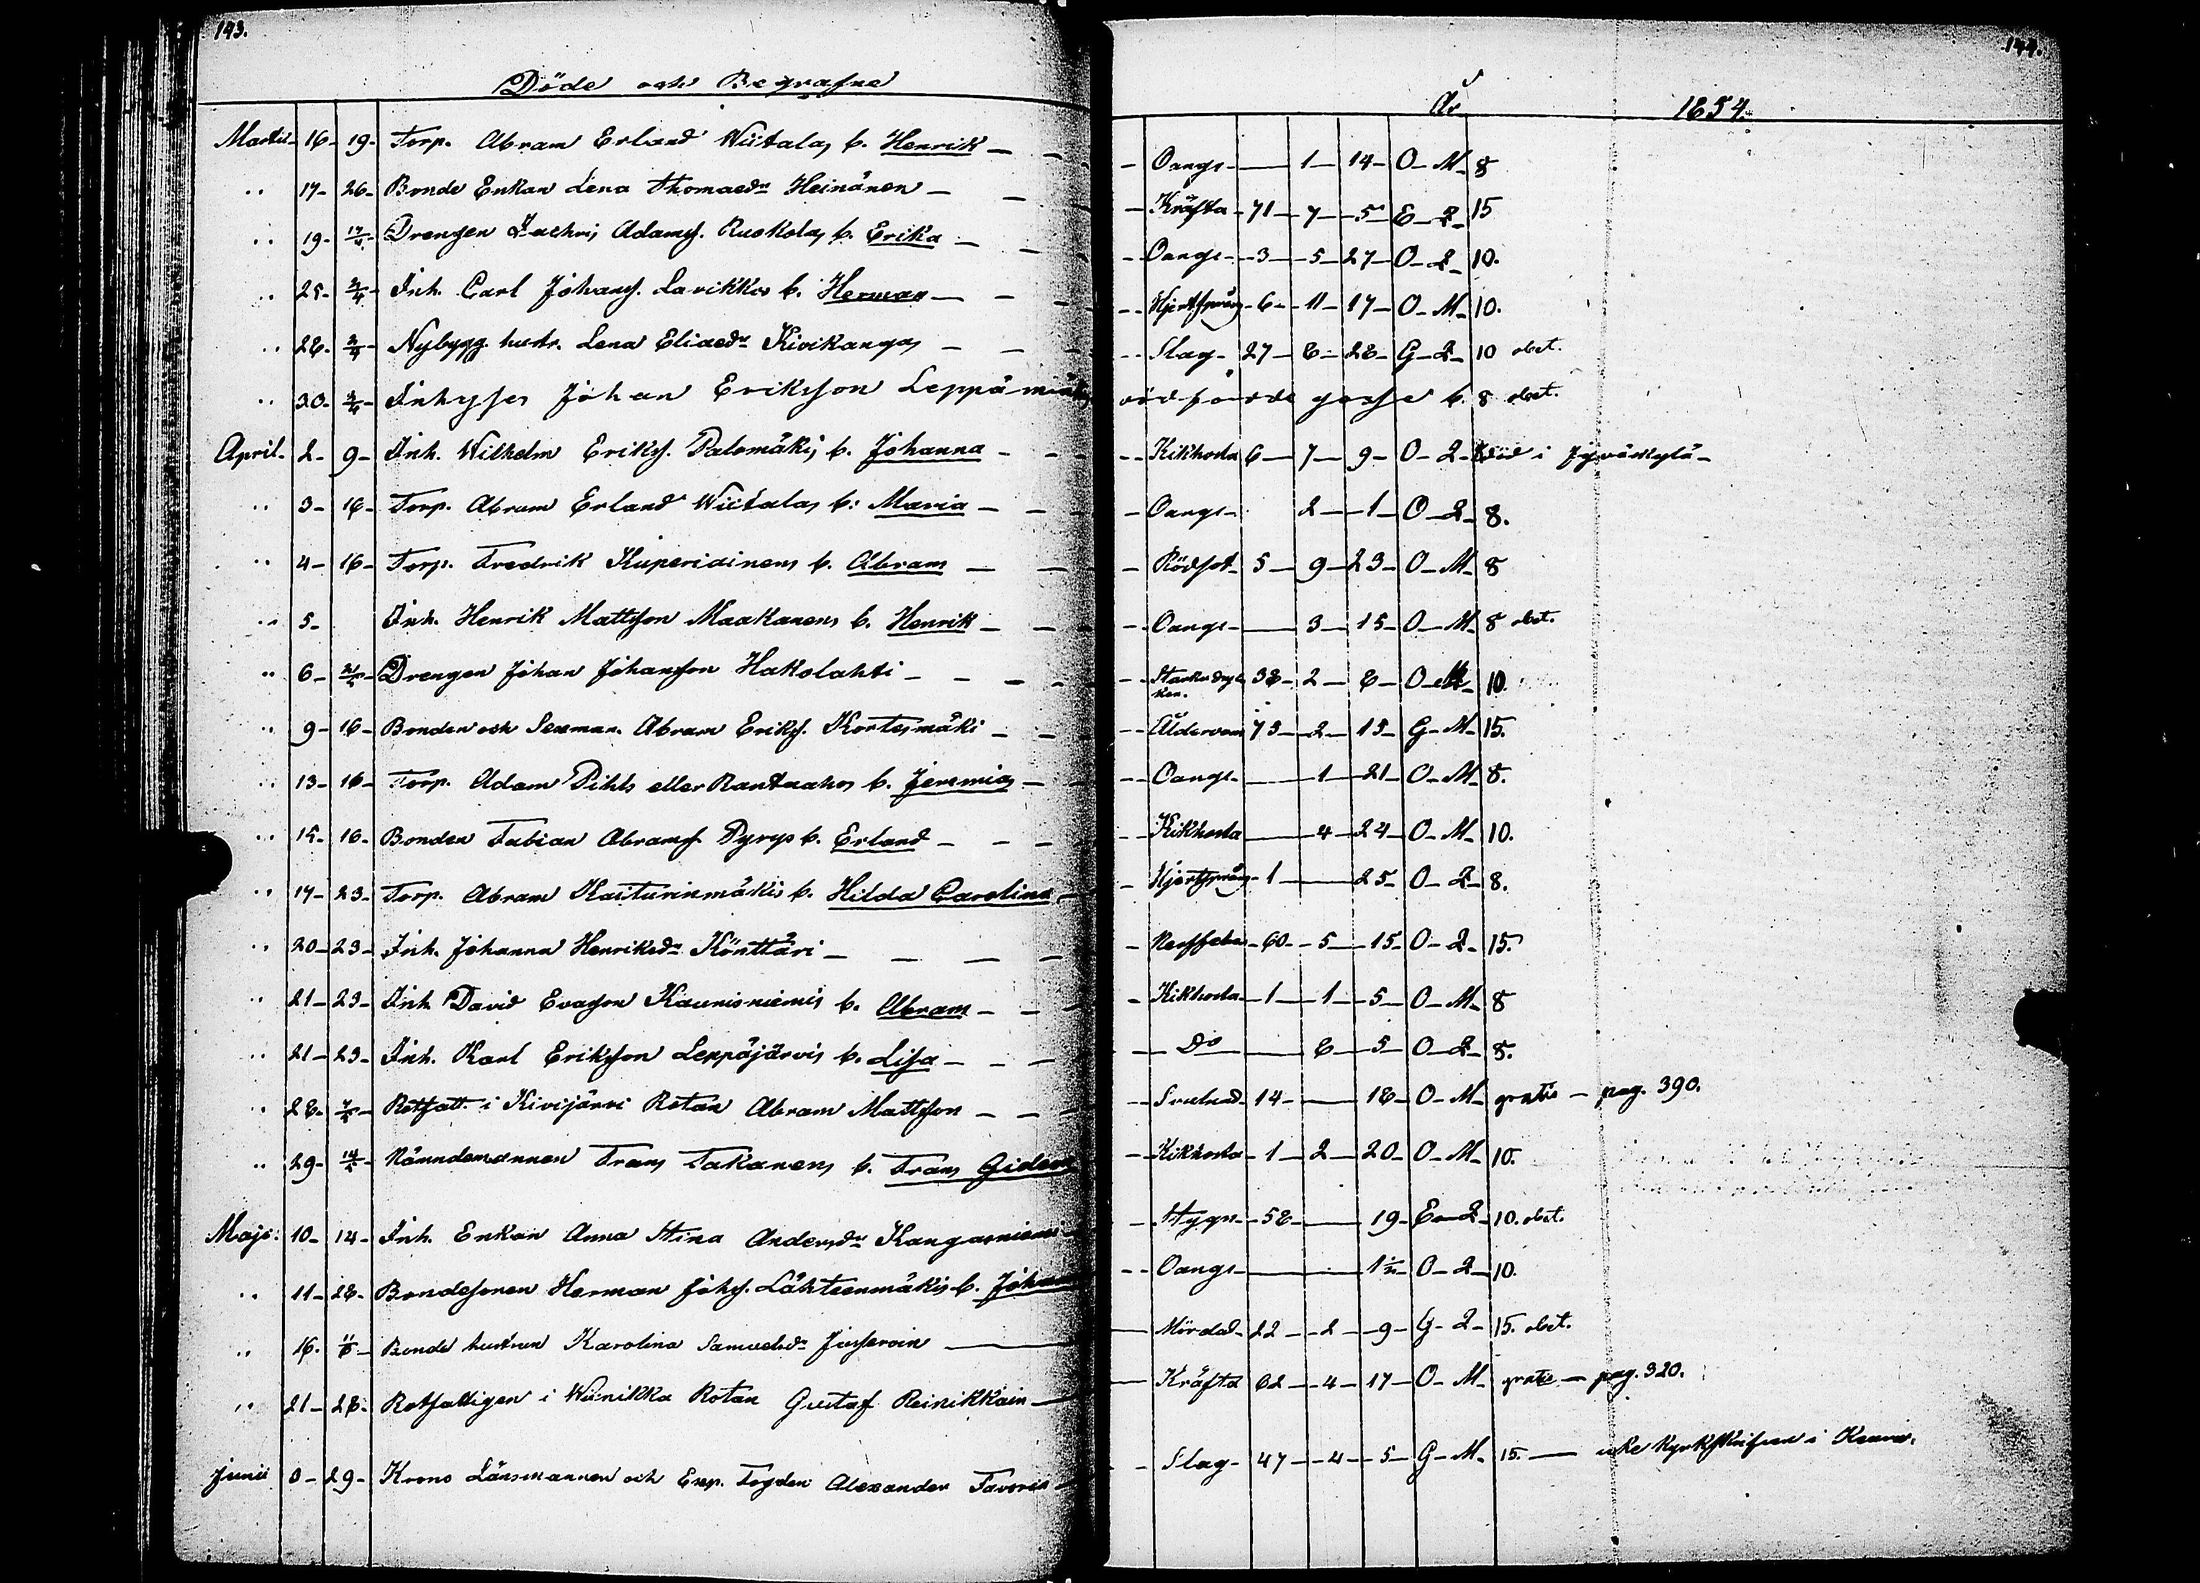 143.
144.
Döde och Begrafne
År 1854.
Martii 16 - 19 - Torp. Abram Erland Wiitalas b. Henrik - Oangs - 1 - 14 - O - M - 8
" 17 - 26 - Bonde Enkan Lena Thomaedr Heinänen - Kräfta - 71 - 7 - 5 - E - Q - 15
" 19 - 17/4 - Drengen Zachris Adamss. Ruokolas b. Erika - Oangs - 3 - 5 - 27 - O - Q - 10.
" 25 - 2/4 - Inh. Carl Johanss. Lavikkos b. Herman - Hjertsprång - 6 - 11 - 17 - O - M - 10.
" 28 - 2/4 - Nybygg. hustr. Lena Eliaedr Kivikangas - Slag - 27 - 8 - 28 - G - Q - 10 obet.
" 30 - 2/4 - Inhyses Johan Eriksson Leppämäkis dödfödde gosse b. 8 obet.
April - 2 - 9 - Inh. Wilhelm Erikss. Palomäkis b. Johanna - Kikhosta 6 - 7 - 9 - O - Q - död i Jyväskylä -
" 3 - 16 - Torp. Abram Erland Wiitalas b: Maria - Oangs - 2 - 1 - O - Q - 8.
" 4 - 16 - Torp. Fredrik Kuperiainens b. Abram - Rödsot - 5 - 9 - 23 - O - M - 8
" 5 - Inh. Henrik Mattsson Maakanens b. Henrik - Oangs - 3 - 15 - O - M - 8 obet.
" 6 - 21/5 - Drengen Johan Johansson Hakolahti - Starka dryc ken. 38 - 2 - 8 - O - M - 10.
" 9 - 16 - Bonden och Sexman. Abram Erikss. Kortesmäki - Ålderdom 75 - 2 - 15 - G - M - 15.
" 13 - 16 - Torp. Adam Pihls eller Rantaahos b. Jeremias - Oangs - 1 - 21 - O - M - 8.
" 15 - 16 - Bonden Fabian Abramss. Pyrys b. Erland - Kikhosta - 4 - 24 - O - M - 10.
" 17 - 23 - Torp. Abram Kauturinmäkis b. Hilda Carolina - Hjertsprång - 1 - 25 - O - Q - 8.
" 20 - 23 - Inh. Johanna Henriksdr Könttäri - Nerffeber - 60 - 5 - 15 - O - Q - 15.
" 21 - 23 - Inh David Evasson Kaunisniemis b. Abram - Kikhosta - 1 - 1 - 5 - O - M - 8
" 21 - 23 - Inh. Karl Eriksson Leppäjärvis b. Lisa - Do - 8 - 5 - O - Q - 8.
" 28 - 7/5 - Rotfatt. i Kivijärvi Rotan Abram Mattsson - 14 - 18 - O - M - gratis - pag. 390.
" 29 - 14/5 - Nämndemannen Frans Takanens b. Frans Gideon - Kikhosta - 1 - 2 - 20 - O - M - 10.
Maji: 10 - 14 - Inh. Enkan Anna Stina Andersdr Kangasniemi - Stygn - 58 - 19 - E - Q - 10. obet.
" 11 - 28 - Bondesonen Herman Johss. Lähteenmäkis b. Johan - Oangs - 1 1/2 - O - Q - 10.
" 16. 11/6 - Bonde hustrun Karolina Samuelsdr - Mördad - 22 - 2 - 9 - G - Q - 15. obet.
" 21 - 28 - Rotfattigen i Wiinikka Rotan Gustaf Reinikkain - Kräfta 62 - 4 - 17 - O - M - gratis - pag. 320.
Junii - 29 - Krono Länsmannen och Exp. Fogden Alexander Favorin - Slag - 47 - 4 - 5 - G - M - 15. - i